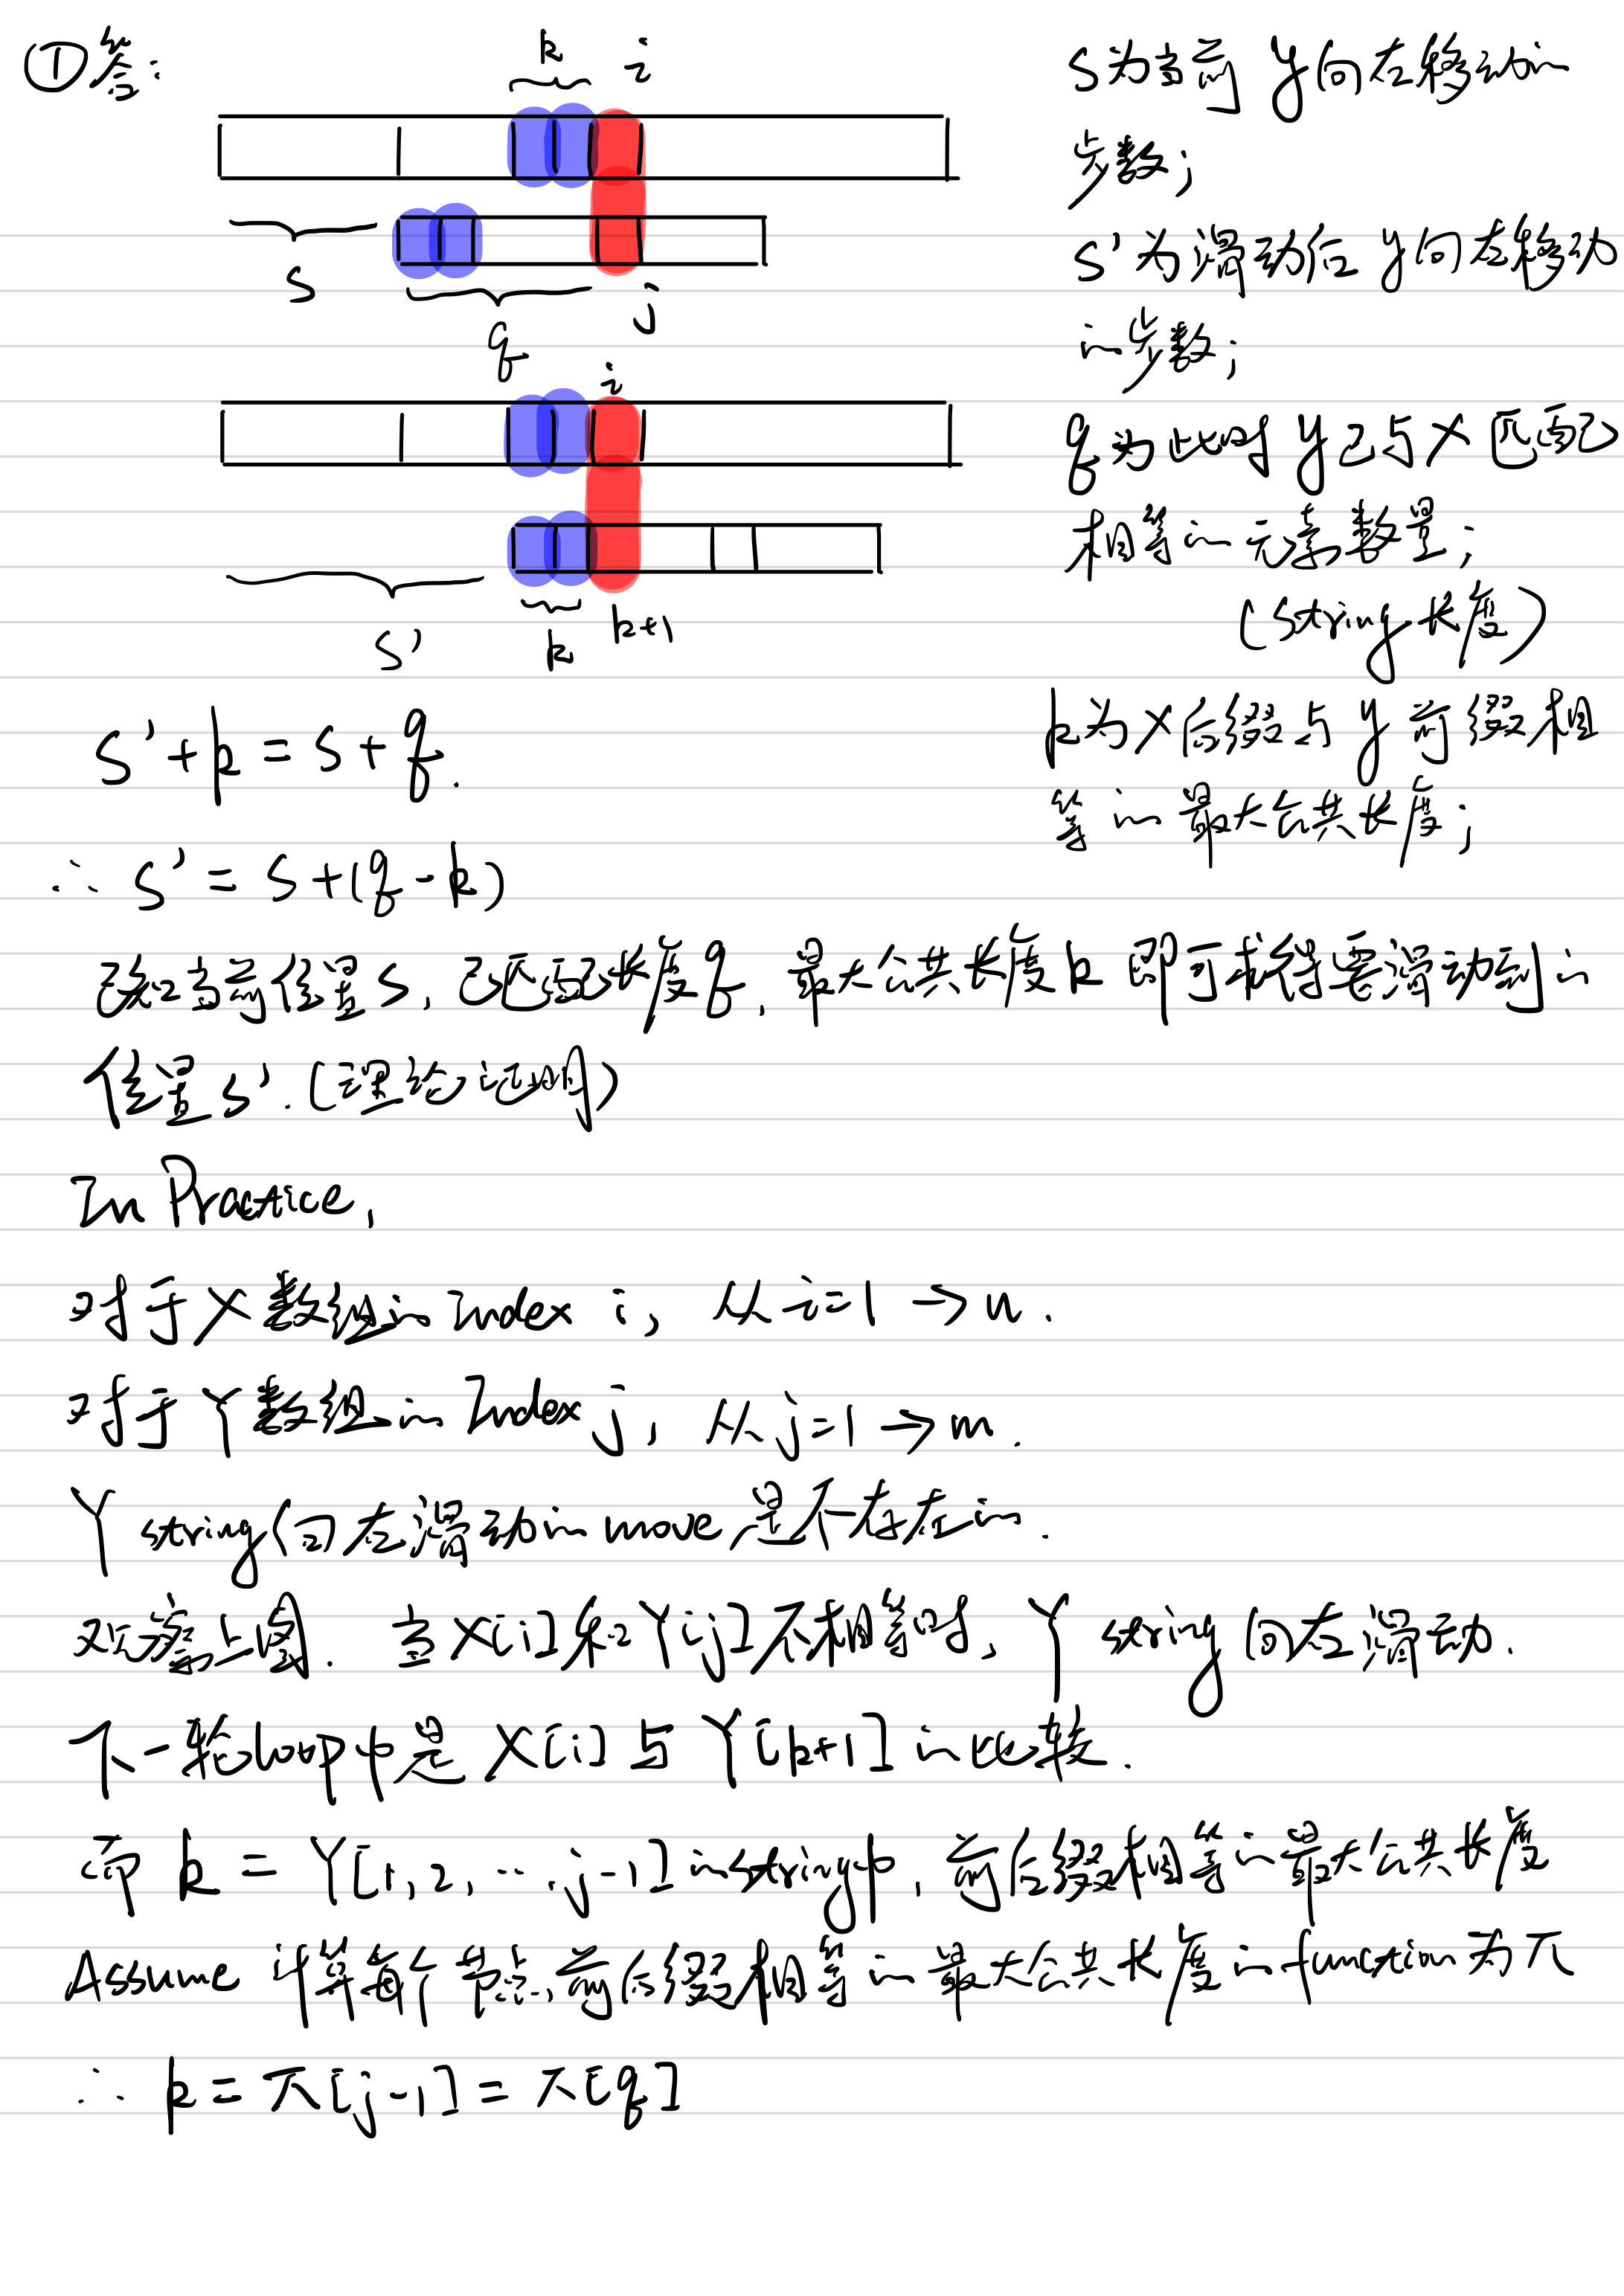 ①答:
k
i
s
q
j
i
s'
k
k+1
s为当前 y向左移动的
步数;
s'为滑动后 y向左移动
的步数;
q为此时 y已与X匹配
相等的元素数量;
(string 长度)
k为X后缀与y前缀相
等的最大公共长度;
s'+k = s+q.
∴ s' = s+(q-k)
已知当前位置s, 已匹配长度q, 最大公共长度k 即可求得要滑动到的
位置s'.(理论证明)
In Practice,
对于X数组的Index i, 从i=1→n.
对于Y数组的Index j, 从j=1→m.
Y string向左滑动的move是不存在的.
观察上图. 当X[i]和Y[j]不相等时, Y string向左滑动.
下一轮loop中是 X[i]与Y[k+1]的比较.
而 k = Y[1,2,...,j-1]的string中, 前后缀相等的最大公共长度
Assume 计算每个节点前后缀相等的最大公共长度的function为π
∴ k = π[j-1] = π[q]